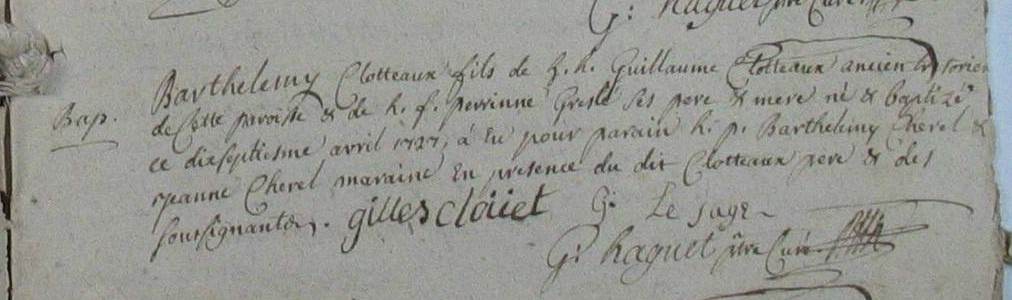 G: haguet ptre Curé
Bap.
Barthelemy Clotteaux fils de h. h. Guillaume Clotteaux ancien tresorier
de cette paroisse & de h. f. perrinne Greslé ses pere & mere né & baptizé
ce dixseptiesme avril 1727, à eu pour parain h. p. Barthelemy Cherel &
jeanne Cherel maraine En presence du dit Clotteaux pere & des
soussignantes. gilles cloüet G. Le juge
G: haguet ptre Curé